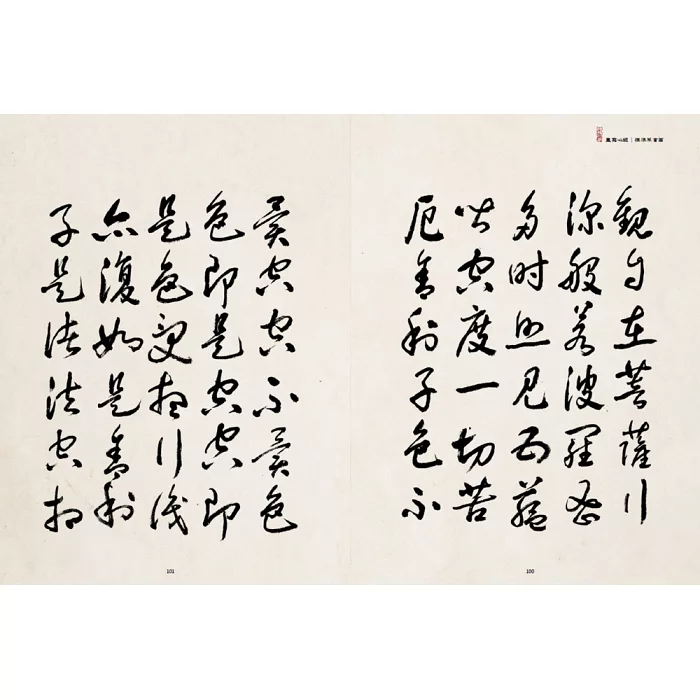 觀自在菩薩行
深般若波羅蜜
多時照見五蘊
皆空度一切苦
厄舍利子色不
100
異空空不異色
色即是空空即
是色受想行識
亦復如是舍利
子是諸法空相
101